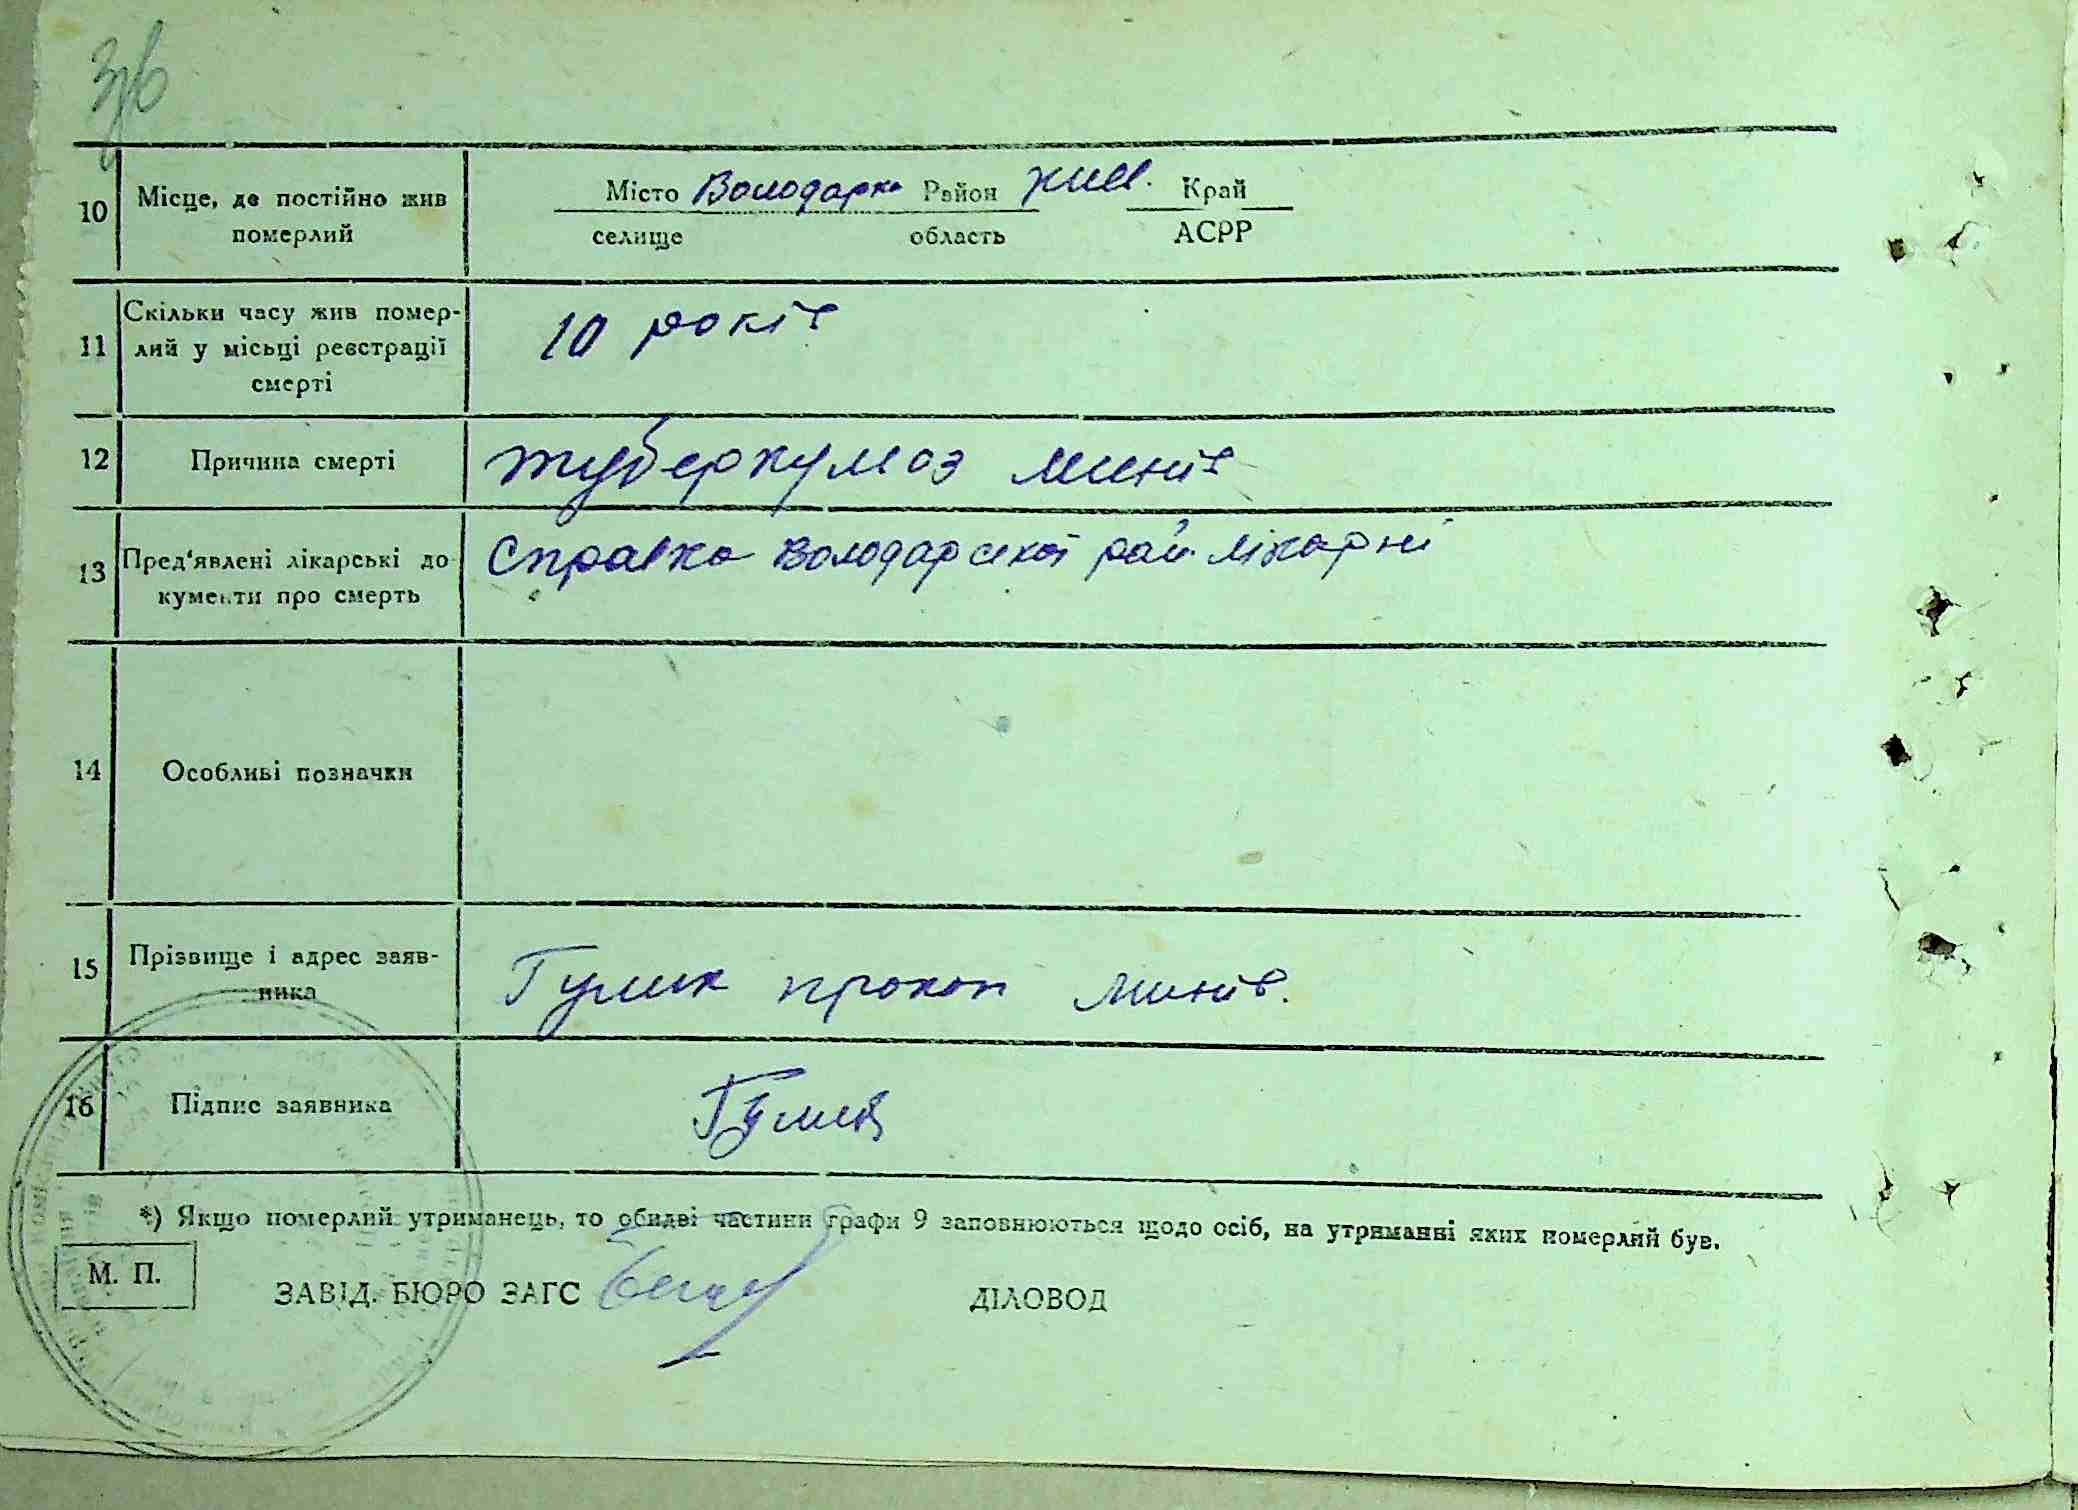 36
10 Місце, де постійно жив
померлий
Місто Володарка Район Київ. Край
селище область АСРР
11 Скільки часу жив помер-
лий у місьці реєстрації
смерті
10 років
12 Причина смерті
туберкульоз легенів
13 Пред'явлені лікарські до-
кументи про смерть
Справка Володарської рай. лікарні
14 Особливі позначки
15 Прізвище і адрес заяв-
ника
Гулик прокоп
16 Підпис заявника
Гулик
*) Якщо померлий утриманець, то обидві частини графи 9 заповнюються щодо осіб, на утриманні яких померлий був.
М. П.
ЗАВІД. БЮРО ЗАГС ДІЛОВОД